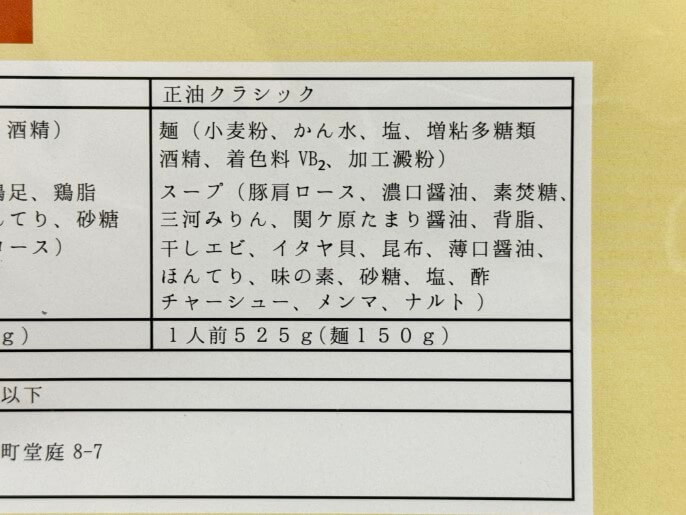 正油クラシック
酒精）
麺（小麦粉、かん水、塩、増粘多糖類
酒精、着色料 VB₂、加工澱粉）
鶏足、鶏脂
スープ（豚肩ロース、濃口醤油、素焚糖、
んてり、砂糖
三河みりん、関ケ原たまり醤油、背脂、
ロース）
干しエビ、イタヤ貝、昆布、薄口醤油、
ほんてり、味の素、砂糖、塩、酢
チャーシュー、メンマ、ナルト ）
ｇ）
１人前５２５ｇ(麺１５０ｇ）
以下
町堂庭 8-7